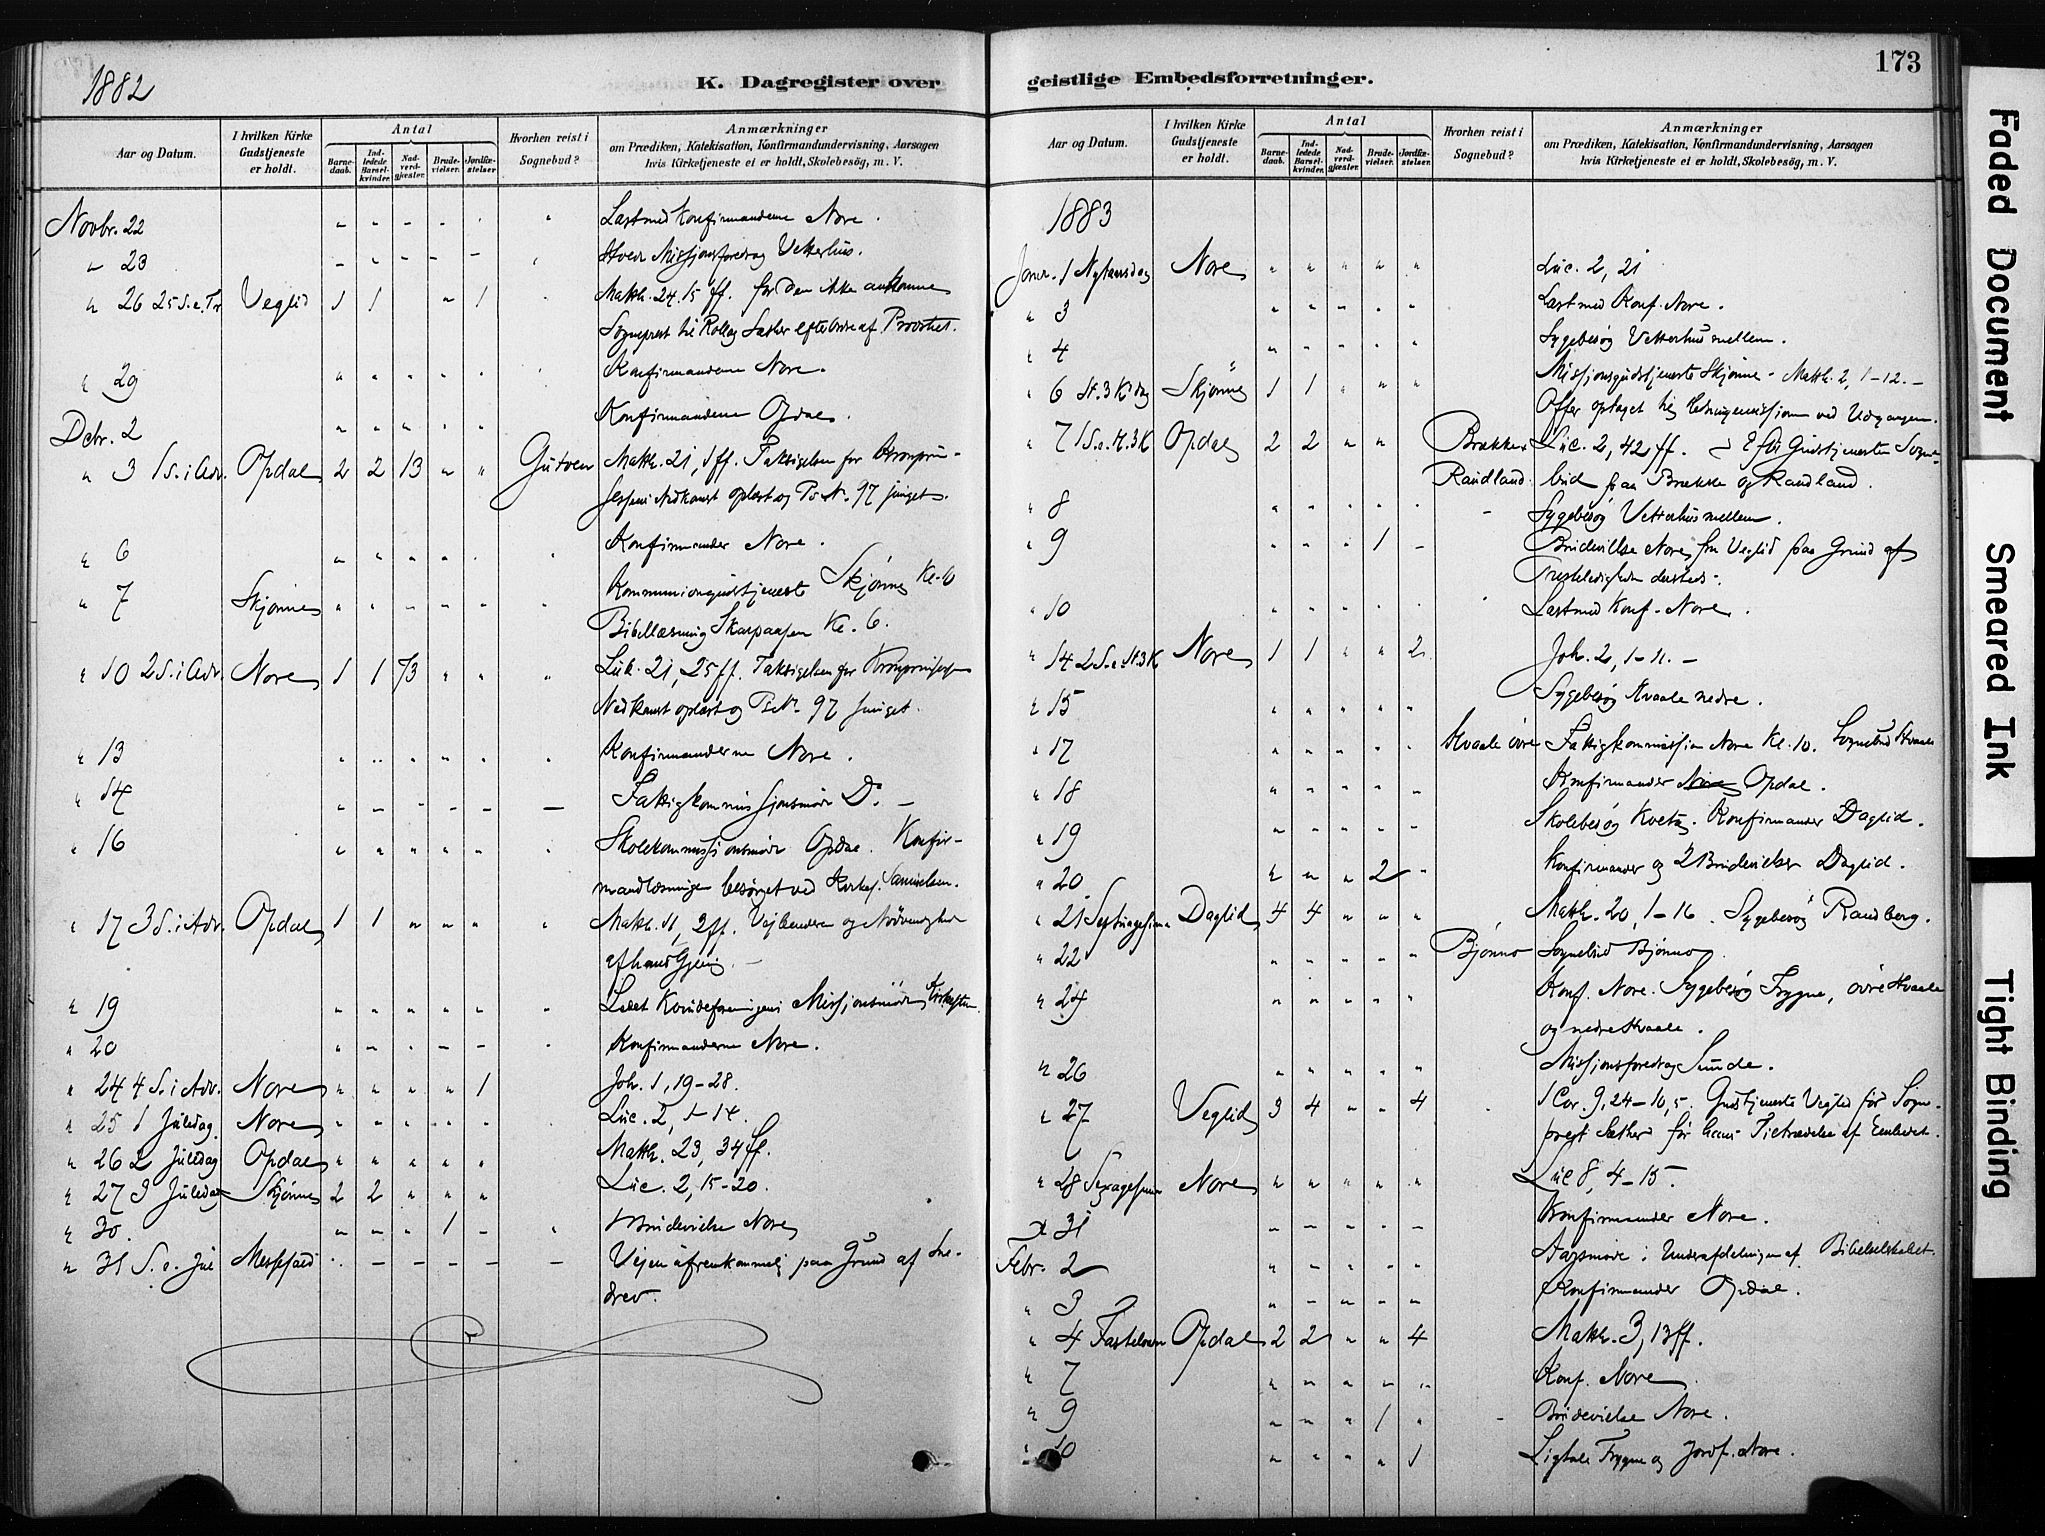 1882
K. Dagregister over
Aar og Datum.
I hvilken Kirke Gudstjeneste er holdt.
Antal
Barnedaab.
Indledede Barselkvinder.
Nadverdgjæster.
Brudevielser.
Jordfæstelser
Hvorhen reist i Sognebud?
Anmærkninger
om Prædiken, Katekisation, Konfirmandundervisning, Aarsagen
hvis Kirketjeneste ei er holdt, Skolebesög, m. V.
Novbr. 22 " " " " " " Læst med Konfirmanderne Nore.
" 23 " " " " " " Missjonsforedrag Vetterhus.
" 26 25 S. e. Tr. Veglid 1 1 " 1 Matth. 24. 15 ff. for den ikke ankomne
Sogneprest til Rollag Sæther efter Ordre af Provstiet.
" 29 " " " " " " Konfirmanderne Nore.
Debr. 2 " " " " " Konfirmanderne Opdal.
" 3 1 S. i Adv. Opdal 2 2 13 " " Matth. 21, 1 ff. Taksigelsen for Kronprin-
sessens Nedkomst oplæst og Ps. N. 97 sunget.
" 6 " " " " " " Konfirmander Nore.
" 7 Skjönne " " " " " " Kommuniongudstjeneste Skjönne Kl. 6
Bibellæsning Skarpaasen Kl. 6.
" 10 2 S. i Adv. Nore 1 1 73 " " " Luk. 21, 25 ff. Taksigelsen for Kronprinsessens
Nedkomst oplæst og Ps. N. 97 sunget.
" 13 " " " " " " Konfirmanderne Nore.
" 14 " " " " " — Fattigkommissjonsmöde Do. —
" 16 " " " " " " Skolekommissjonsmöde Opdal. Konfir-
mandlæsningen besörget ved Kirkes. Samuelsen.
" 17 3 S. i Adv. Opdal 1 1 " " " " Matth. 11, 2 ff. Vejledere og Nödvendighed
" 19 " " " " " " Ledet Kvindeforeningens Missjonsmöde
" 20 " " " " " " Konfirmanderne Nore.
" 24 4 S. i Adv. Nore " " " " 1 Joh. 1, 19-28.
" 25 1 Juledag Nore " " " " " Luc. 2, 1-14.
" 26 2 Juledag Opdal " " " " " Matth. 23, 34 ff.
" 27 3 Juledag Skjönne 2 2 " " " Luc. 2, 15-20.
" 30. " " " 1 " " 1 Brudevielse Nore
" 31 S. e. Jul Messefald " — — — — — Vejen ufremkommelig paa Grund af Sne-
drev.
173
geistlige Embedsforretninger.
Aar og Datum.
I hvilken Kirke Gudstjeneste er holdt.
Antal
Barnedaab.
Indledede Barselkvinder.
Nadverdgjæster.
Brudevielser.
Jordfæstelser.
Hvorhen reist i Sognebud?
Anmærkninger
om Prædiken, Katekisation, Konfirmandundervisning, Aarsagen
hvis Kirketjeneste ei er holdt, Skolebesög, m. V.
1883
Janr. 1 Nytaarsdag Nore " " " " " Luc. 2, 21
" 3 " " " " " Læst med Konf. Nore.
" 4 " " " " " Sygebesög Vetterhus mellem.
" 6 H. 3 K. dag Skjönne 1 1 " " " Missjonsgudstjeneste Skjönne - Matth. 2, 1-12. -
Offer optaget til Hedningemissjonen ved Udgangen.
" 7 1 S. e. H. 3 K Opdal 2 2 " " Brække Luc. 2, 42 ff. Efter Gudstjenesten Sogne-
Raudland bud paa Brække og Raudland.
" 8 " " " " " " Sygebesög Vetterhus mellem.
" 9 " " " 1 " Brudevielse Nore fra Veglid paa Grund af
Presteledigheden dersteds.
" 10 " " " " " " Læst med Konf. Nore.
" 14 2 S. e. H. 3 K Nore 1 1 " " 2 Joh. 2, 1-11. -
" 15 " " " " " Sygebesög Kvaale nedre.
" 17 " " " " " Kvaale övre Fattigkommissjon Nore Kl. 10. Sognebud Kvaale
" 18 " " " " " Konfirmander Nore Opdal.
" 19 " " " " " Skolebesög Konfirmander Daglid.
" 20 " " " 2 " Konfirmander og 2 Brudevielser Daglid.
" 21 Septuagesima Daglid 4 4 " " " Matth. 20, 1-16. Sygebesög Raudberg.
" 22 " " " " " Bjönno Sognebud Bjönno.
" 24 " " " " " Konf. Nore. Sygebesög Frygne, övre Kvaale
og nedre Kvaale.
" 26 " " " " " Missjonsforedrag Sunde.
" 27 Veglid 3 4 " " 4 1 Cor. 9, 24-10, 5. Gudstjeneste Veglid for Sogne-
prest Sæther för hans Tiltrædelse af Embedet.
" 28 Sexagesima Nore " " " " " Luc 8, 4-15.
" 31 " " " " " Konfirmander Nore.
Febr. 2 " " " " " Aarsmöde i Underafdelingen af Bibelselskabet.
" 3 " " " " " Konfirmander Opdal.
" 4 Fastelavn Opdal 2 2 " " 4 Matth. 3, 13 ff.
" 7 " " " " " Konf. Nore
" 9 " " " 1 " " Brudevielse Nore.
" 10 " " " " 1 Ligtale Frygne og Jordf. Nore.
Faded Document
Smeared Ink
Tight Binding